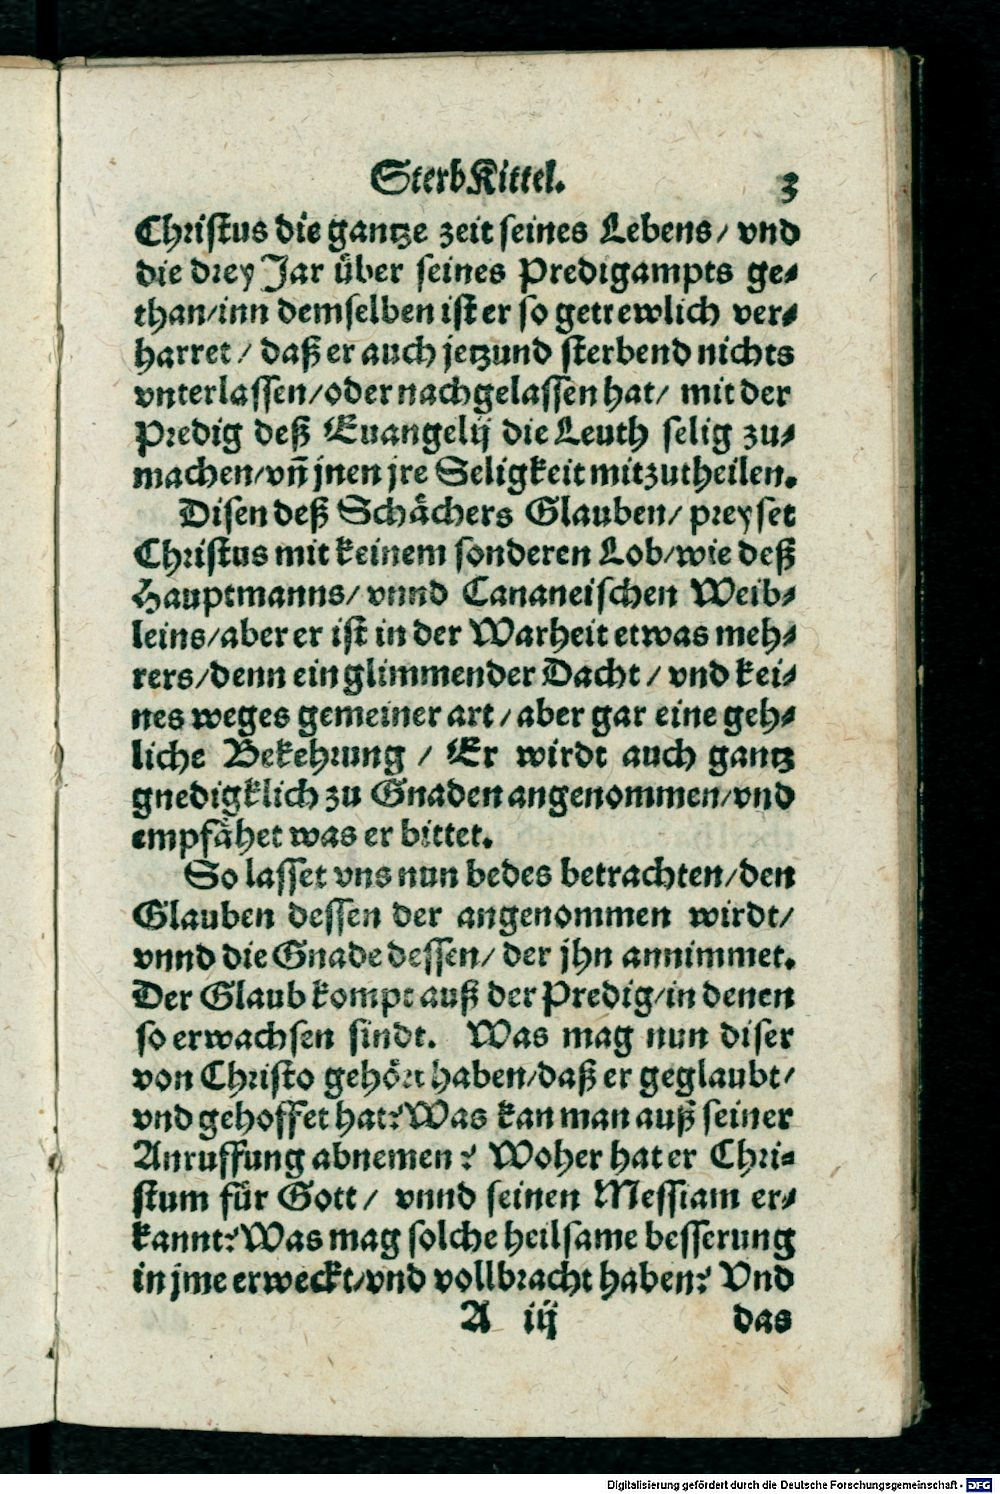 SterbKittel. 3
Christus die gantze zeit seines Lebens/ vnd
die drey Jar uͤber seines Predigampts ge-
than/inn demselben ist er so getrewlich ver-
harret/ daß er auch jetzund sterbend nichts
vnterlassen/oder nachgelassen hat/ mit der
Predig deß Euangelij die Leuth selig zu-
machen/vñ jnen jre Seligkeit mitzutheilen.
Disen deß Schaͤchers Glauben/ preyset
Christus mit keinem sonderen Lob/wie deß
Hauptmanns/ vnnd Cananeischen Weib-
leins/aber er ist in der Warheit etwas meh-
rers/denn ein glimmender Dacht/ vnd kei-
nes weges gemeiner art/ aber gar eine geh-
liche Bekehrung/ Er wirdt auch gantz
gnedigklich zu Gnaden angenommen/vnd
empfaͤhet was er bittet.
So lasset vns nun bedes betrachten/den
Glauben dessen der angenommen wirdt/
vnnd die Gnade dessen/ der jhn annimmet.
Der Glaub kompt auß der Predig/in denen
so erwachsen sindt. Was mag nun diser
von Christo gehoͤrt haben/daß er geglaubt/
vnd gehoffet hat? Was kan man auß seiner
Anruffung abnemen? Woher hat er Chri-
stum fuͤr Gott/ vnnd seinen Messiam er-
kannt? Was mag solche heilsame besserung
in jme erweckt/vnd vollbracht haben? Vnd
A iij das
Digitalisierung gefördert durch die Deutsche Forschungsgemeinschaft - DFG